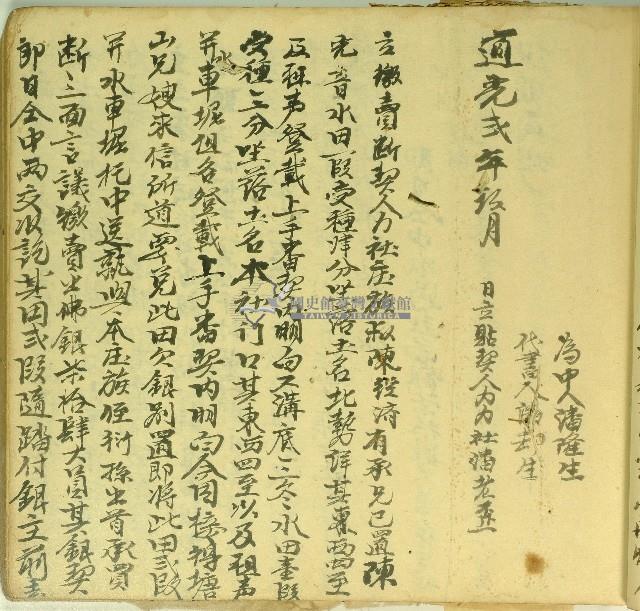 為中人潘隆生
代書人
道光弍年 月 日立點契人力力社潘老
立繳賣斷契人力社庄族叔陳 有承兄已置陳
元音水田一段受種 分坐落土名北勢 其東西四至
及租聲登載上手番契內明白又溝底三冬水田壹段
受種三分坐落土名水社汀口其東西四至以及租聲
并車堀但名登載上手番契內明白今因 塘
山兄嫂來信所道要兌此田欠銀別置即將此田弍段
并水車堀托中送就與本庄族侄衍孫出首承買
斷三面言議繳賣出佛銀柒拾肆大員其銀契
即日仝中兩交收訖其田弍段隨踏付銀主前去
國史館臺灣文獻館
TAIWAN HISTORICA